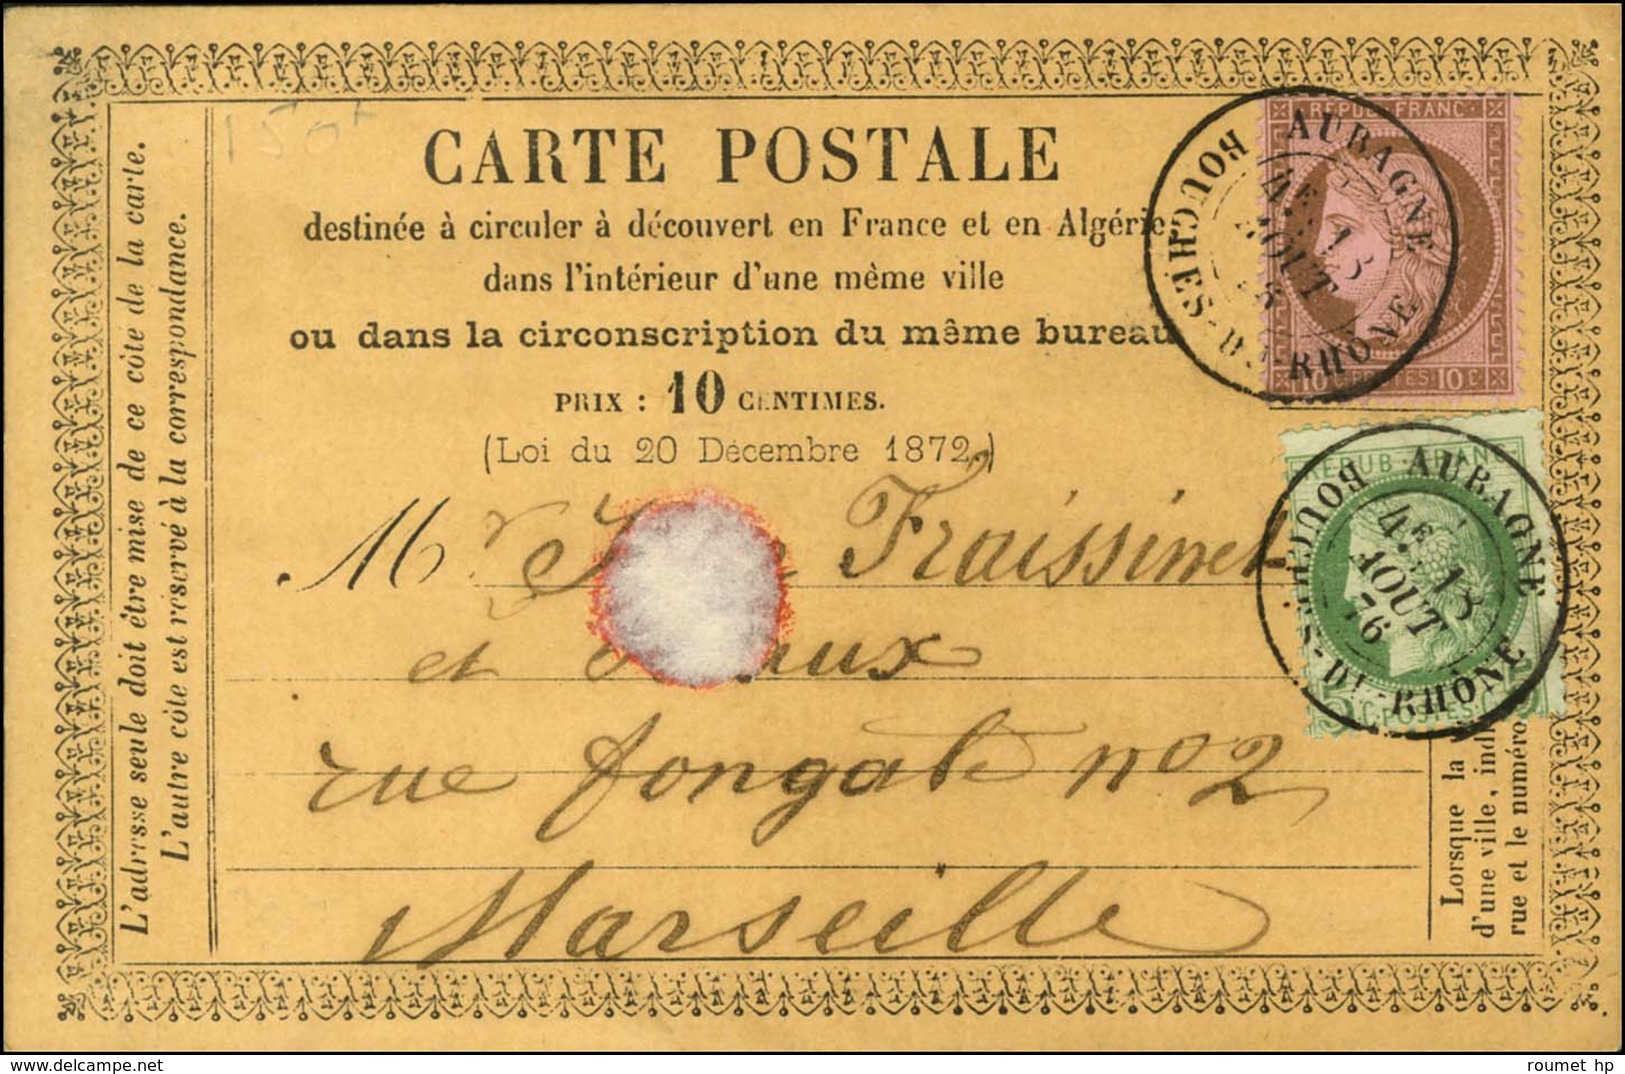 CARTE POSTALE
destinée à circuler à découvert en France et en Algérie,
dans l'intérieur d'une même ville
ou dans la circonscription du même bureau
PRIX : 10 CENTIMES.
(Loi du 20 Décembre 1872.)
Mr Fraissinet
et
rue fongate no 2
Marseille
L'adresse seule doit être mise de ce côté de la carte.
L'autre côté est réservé à la correspondance.
Lorsque la
d'une ville, indi
rue et le numéro
REPUB FRANC
10 POSTES 10 C
AUBAGNE
BOUCHES-DU-RHÔNE
4E
13
AOUT
REPUB FRANC
C POSTES
AUBAGNE
BOUCHES-DU-RHÔNE
4E
13
AOUT
76
roumet hp